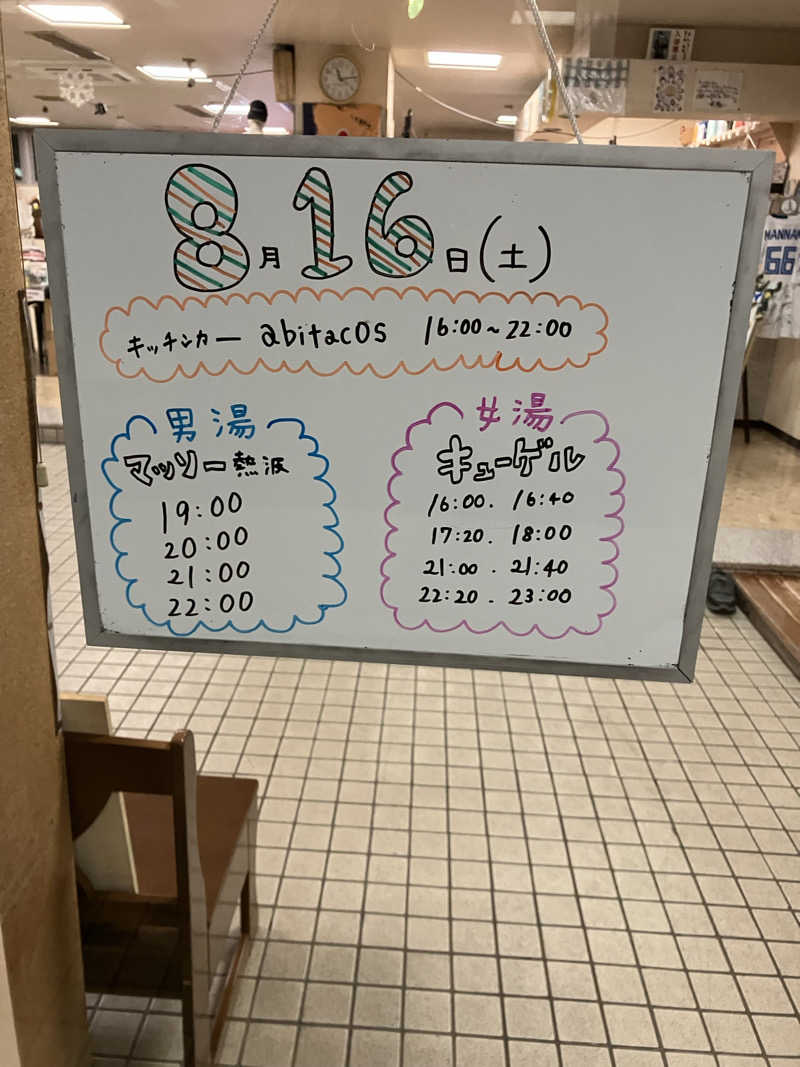 8月16日(土)
キッチンカー abitacos 16:00~22:00
男湯
マッソー熱波
19:00
20:00
21:00
22:00
女湯
キューゲル
16:00. 16:40
17:20. 18:00
21:00. 21:40
22:20. 23:00
66